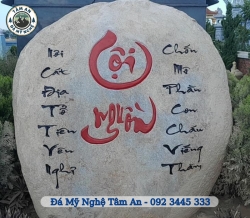 TÂM AN
ĐÁ MỸ NGHỆ
Cội
Nguồn
Nơi
Cát
Địa
Tổ
Tiên
Yên
Nghỉ
Chốn
Mộ
Phần
Con
Cháu
Viếng
Thăm
Đá Mỹ Nghệ Tâm An - 092 3445 333